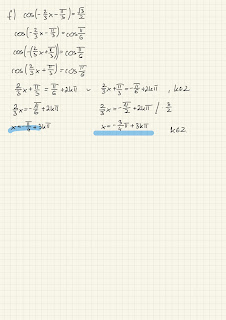 f) cos(-2/3x - π/3) = √3/2
cos(-2/3x - π/3) = cos π/6
cos(-(2/3x + π/3)) = cos π/6
cos(2/3x + π/3) = cos π/6
2/3x + π/3 = π/6 + 2kπ ∨ 2/3x + π/3 = -π/6 + 2kπ , k∈Z
2/3x = -π/6 + 2kπ 2/3x = -π/2 + 2kπ / · 3/2
x = -π/4 + 3kπ x = -3/4π + 3kπ k∈Z